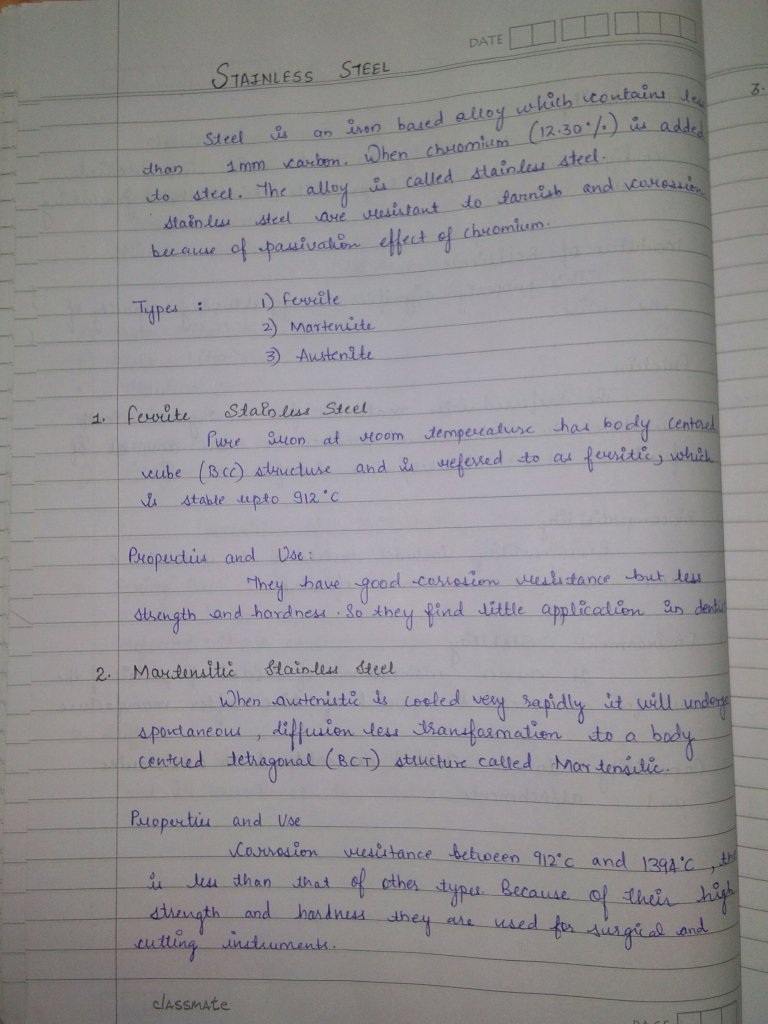 DATE
STAINLESS STEEL
3.
Steel is an iron based alloy which contains less
than 1mm carbon. When chromium (12.30%) is added
to steel. The alloy is called stainless steel.
Stainless steel are resistant to tarnish and corossion
because of passivation effect of chromium.
Types : 1) Ferrite
2) Martensite
3) Austenite
1. Ferrite Stainless Steel
Pure iron at room temperature has body centered
cube (BCC) structure and is refered to as ferritic, which
is stable upto 912°C
Properties and Use:
They have good corrosion resistance but less
strength and hardness. So they find little application in
2. Martensitic Stainless Steel
When austenistic is cooled very rapidly it will undergo
spontaneous, diffusion less transformation to a body
centred tetragonal (BCT) structure called Martensitic.
Properties and Use
Corrosion resistance between 912°C and 1394°C,
is less than that of other types. Because of their high
strength and hardness they are used for surgical and
cutting instruments.
classmate
PAGE